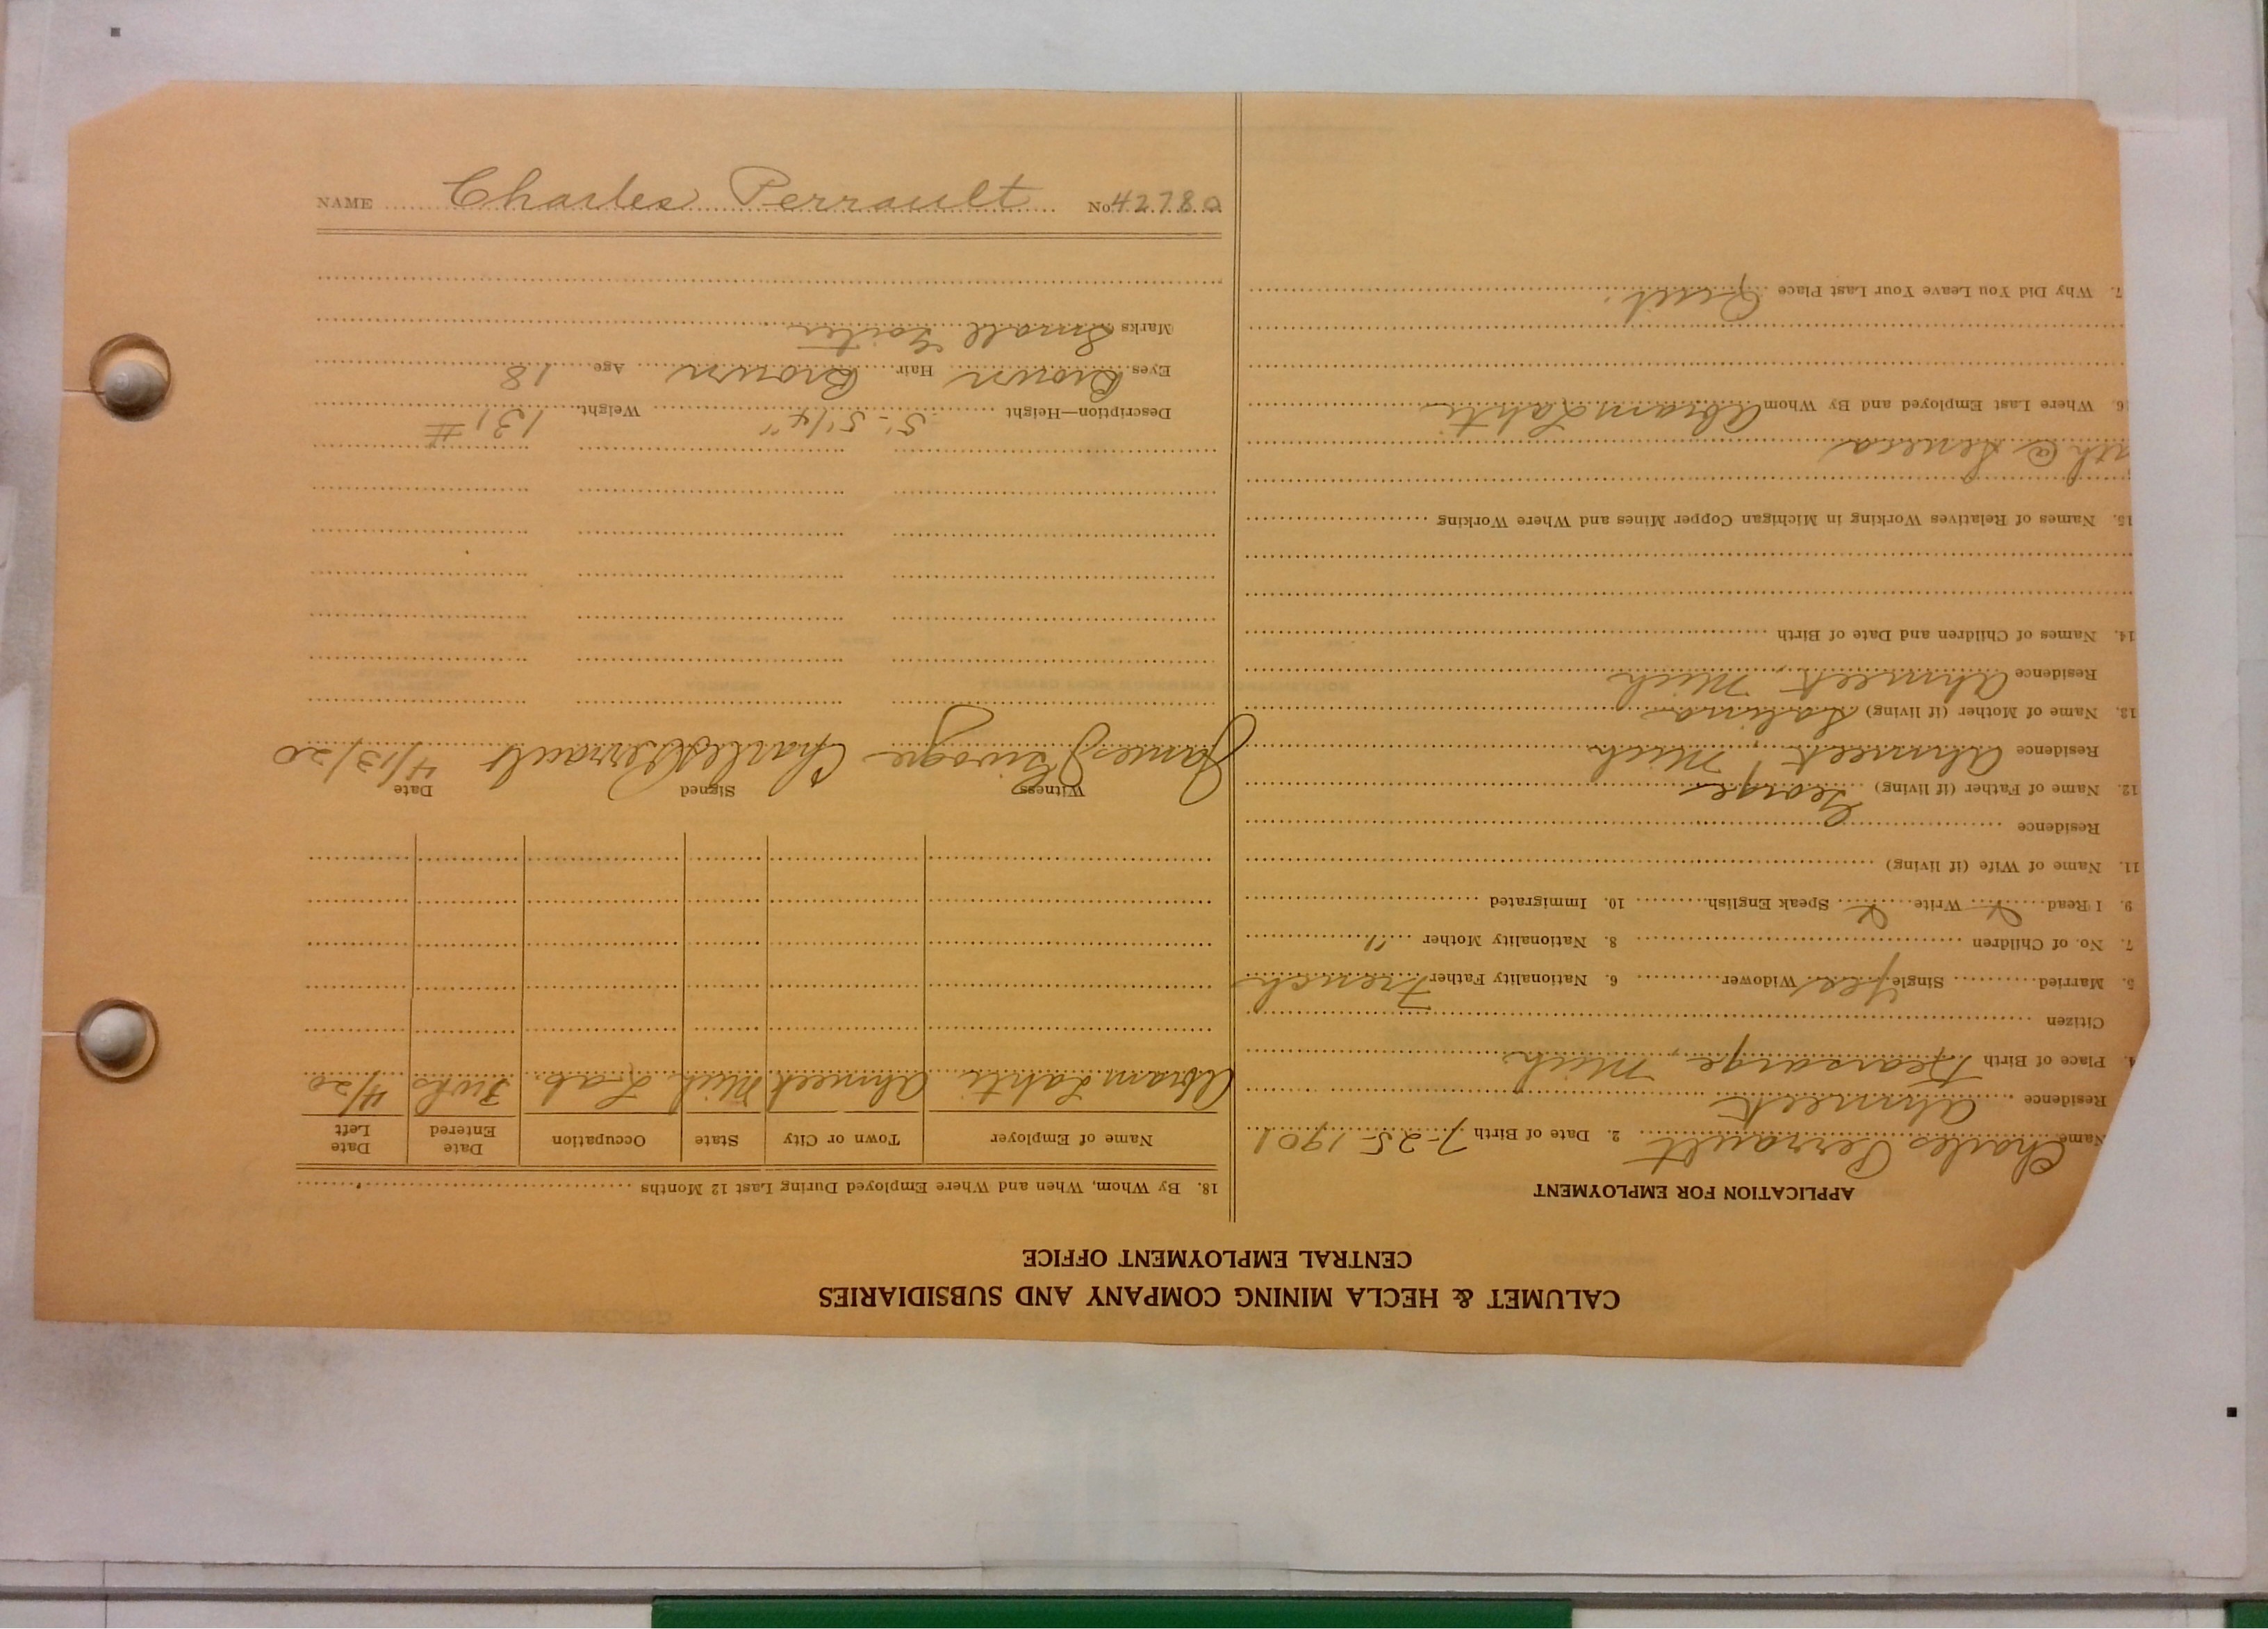 CALUMET & HECLA MINING COMPANY AND SUBSIDIARIES
CENTRAL EMPLOYMENT OFFICE
APPLICATION FOR EMPLOYMENT
Name Charles Perrault 2. Date of Birth 7-25-1901
Residence Ahmeek
4. Place of Birth Kearsarge, Mich
Citizen
5. Married Single Yes Widower 6. Nationality Father French
7. No. of Children 8. Nationality Mother "
9. I Read Write Speak English 10. Immigrated
11. Name of Wife (if living)
Residence
12. Name of Father (if living) George
Residence Ahmeek, Mich
13. Name of Mother (if living)
Residence Ahmeek, Mich
14. Names of Children and Date of Birth
15. Names of Relatives Working in Michigan Copper Mines and Where Working
@ Seneca
16. Where Last Employed and By Whom Abram Lahti
7. Why Did You Leave Your Last Place Quit.
18. By Whom, When and Where Employed During Last 12 Months
Name of Employer Town or City State Occupation Date Entered Date Left
Abram Lahti Ahmeek Mich Lab. 3 wks 4/20
Witness Signed Date
James Charles Perrault 4/13/20
Description—Height 5'-5 1/4" Weight 131 #
Eyes Brown Hair Brown Age 18
Marks Small Goiter
NAME Charles Perrault No. 42780